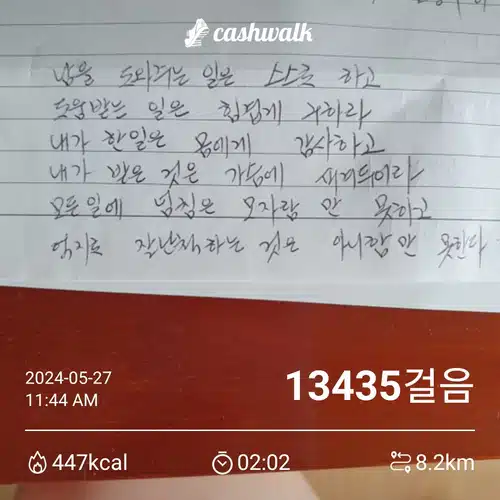 cashwalk
남을 도와주는 일은 스스로 하고
도움받는 일은 힘겹게 구하라
내가 한일은 몸에게 감사하고
내가 받은 것은 가슴에 새겨두어라
모든일에 넘침은 모자람 만 못하고
억지로 잘난척하는 것은 아니함만 못한다
2024-05-27
11:44 AM
13435걸음
447kcal
02:02
8.2km